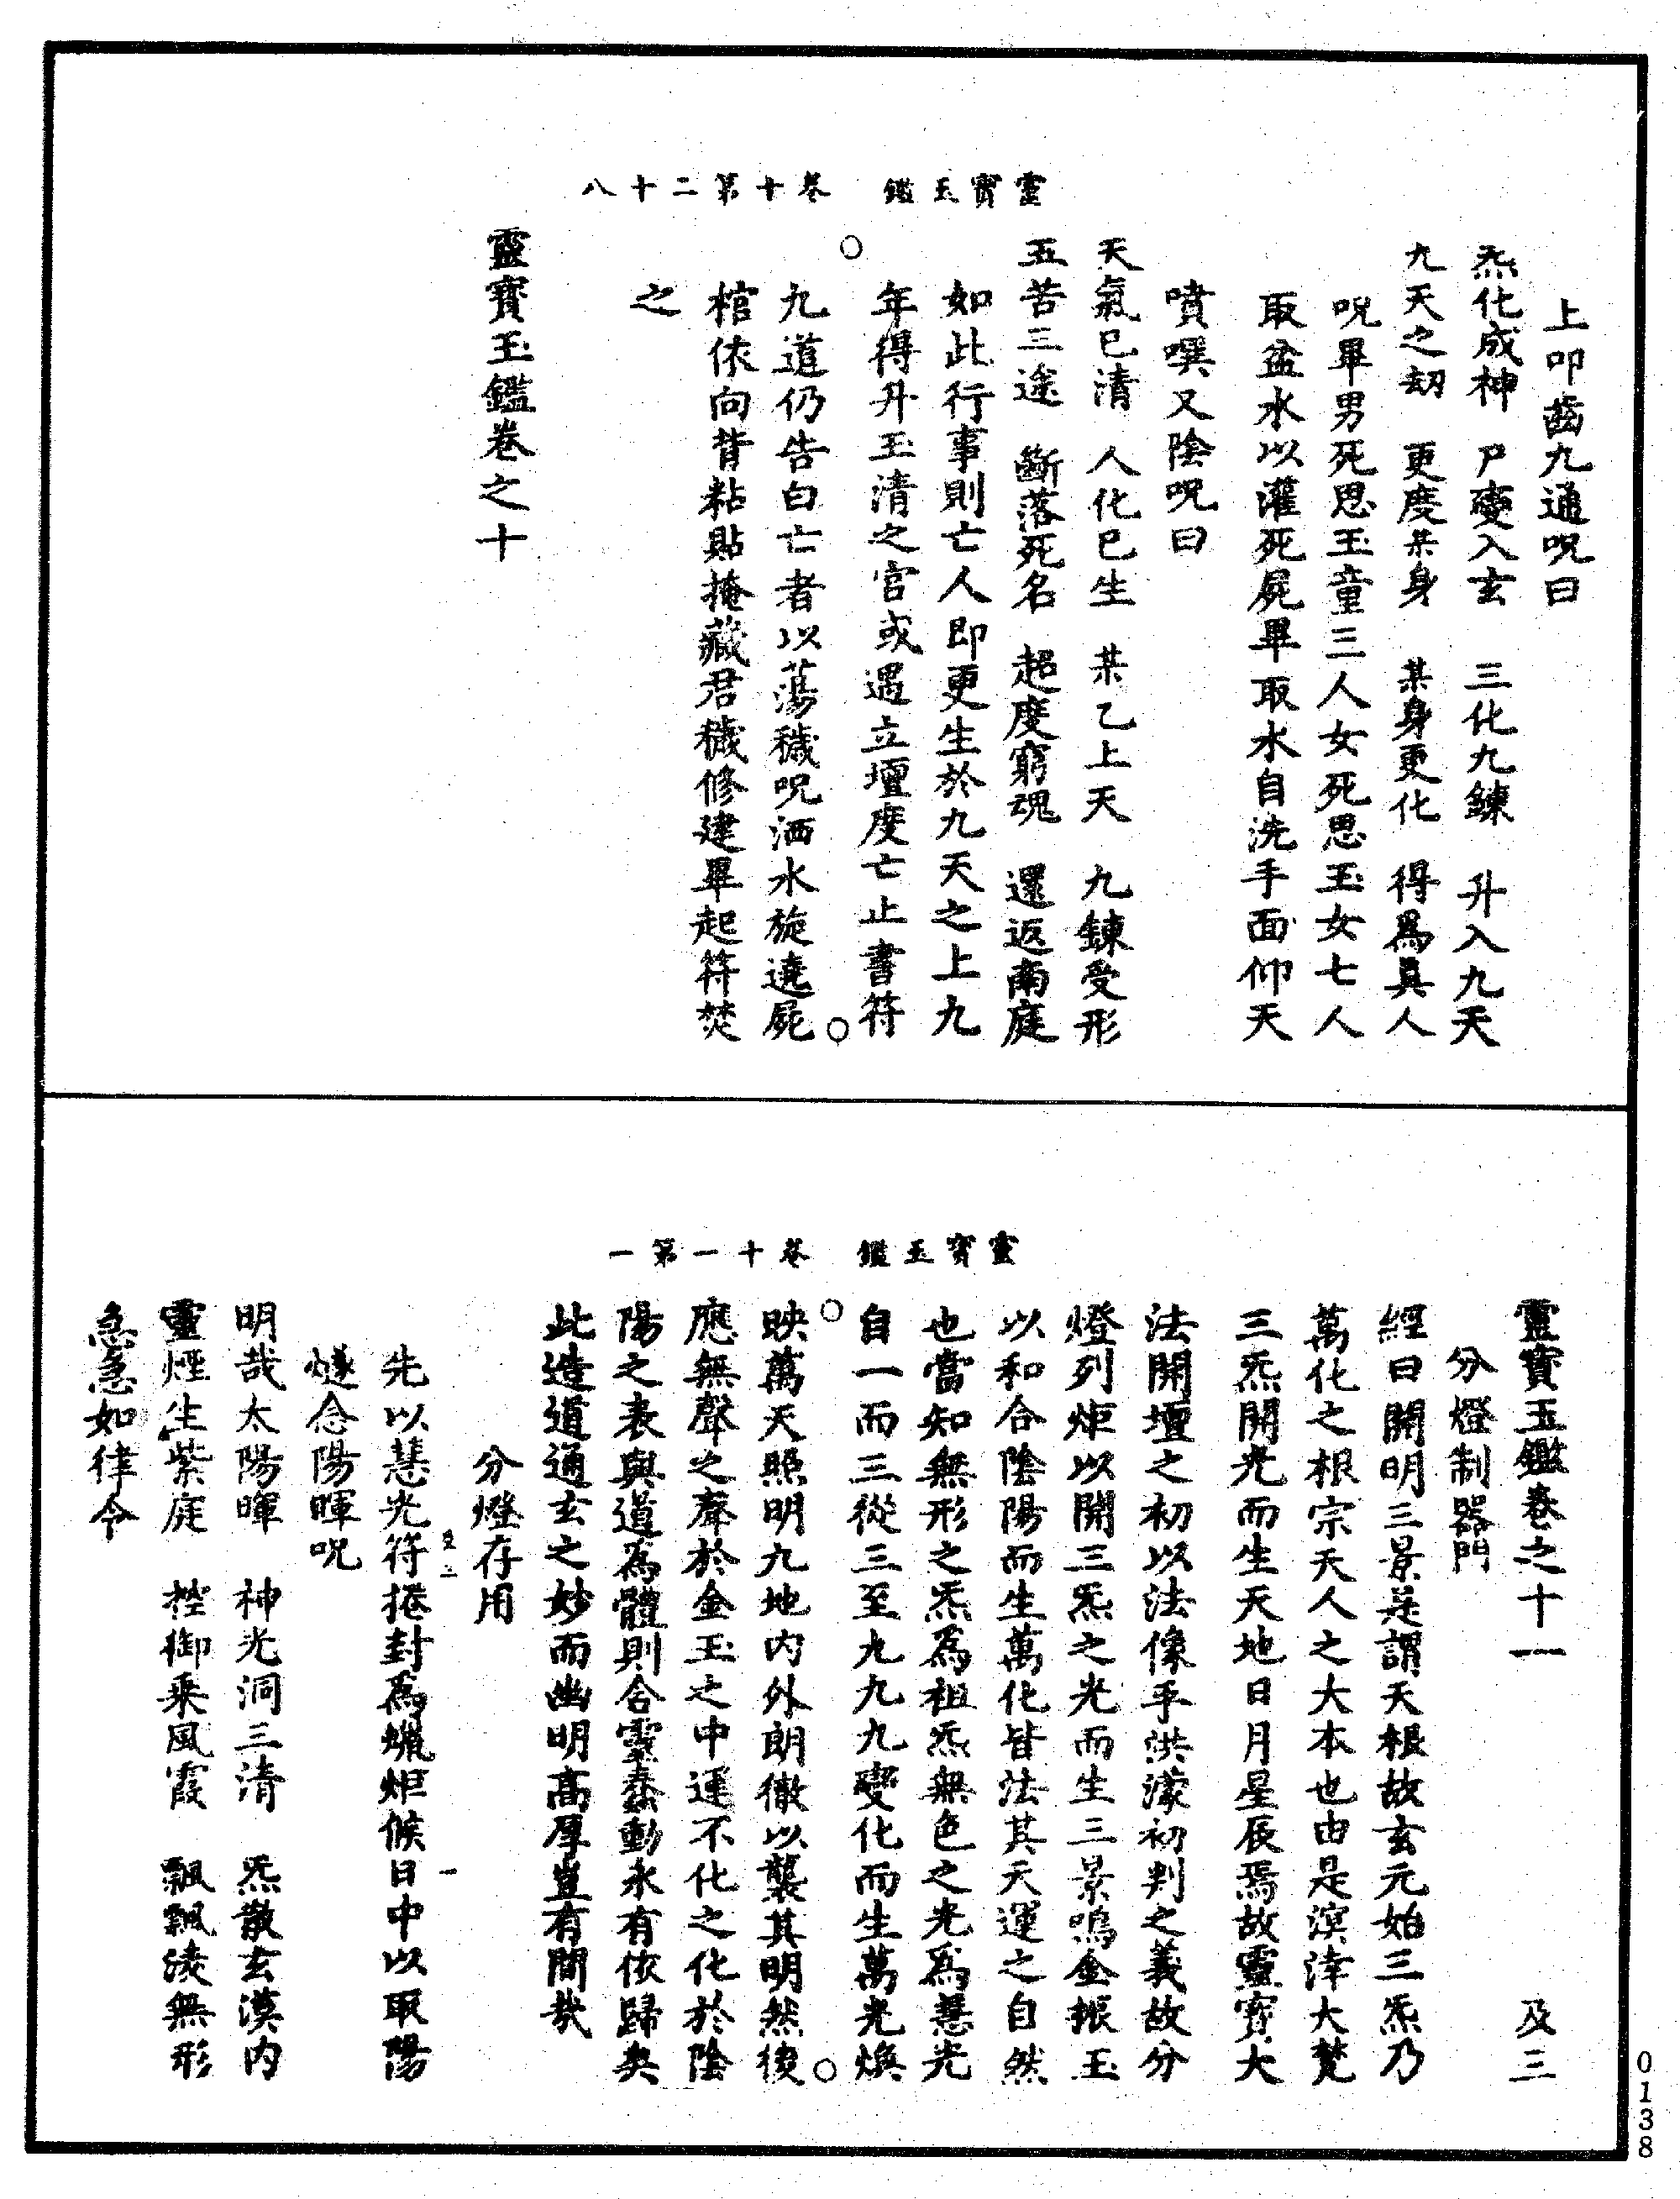 靈寶玉鑑　卷十第二十八
上叩齒九通呪曰
炁化成神　尸變入玄　三化九鍊　升入九天
九天之劫　更度某身　某身更化　得爲眞人
呪畢男死思玉童三人女死思玉女七人
取盆水以灌死屍畢取水自洗手面仰天
噴噀又陰呪曰
天氣已清　人化已生　某乙上天　九鍊受形
五苦三途　斷落死名　超度窮魂　還返南庭
如此行事則亡人即更生於九天之上九
年得升玉清之宮或遇立壇度亡止書符
九道仍告白亡者以蕩穢呪洒水旋遶屍
棺依向背粘貼掩藏君穢修建畢起符焚
之
靈寶玉鑑卷之十
靈寶玉鑑　卷十一第一
靈寶玉鑑卷之十一　及三
分燈制器門
經曰開明三景是謂天根故玄元始三炁乃
萬化之根宗天人之大本也由是溟涬大梵
三炁開光而生天地日月星辰焉故靈寶大
法開壇之初以法像乎洪濛初判之義故分
燈列炬以開三炁之光而生三景鳴金振玉
以和合陰陽而生萬化皆法其天運之自然
也當知無形之炁爲祖炁無色之光爲慧光
自一而三從三至九九九變化而生萬光煥
映萬天照明九地內外朗徹以襲其明然後
應無聲之聲於金玉之中運不化之化於陰
陽之表與道爲體則含靈蠢動永有依歸矣
此造道通玄之妙而幽明高厚豈有間哉
分燈存用
先以慧光符捲封爲蠟炬候日中以取陽
燧念陽暉呪
明哉太陽暉　神光洞三清　炁散玄漠內
靈煙生紫庭　控御乘風霞　飄飄淩無形
急急如律令
0138